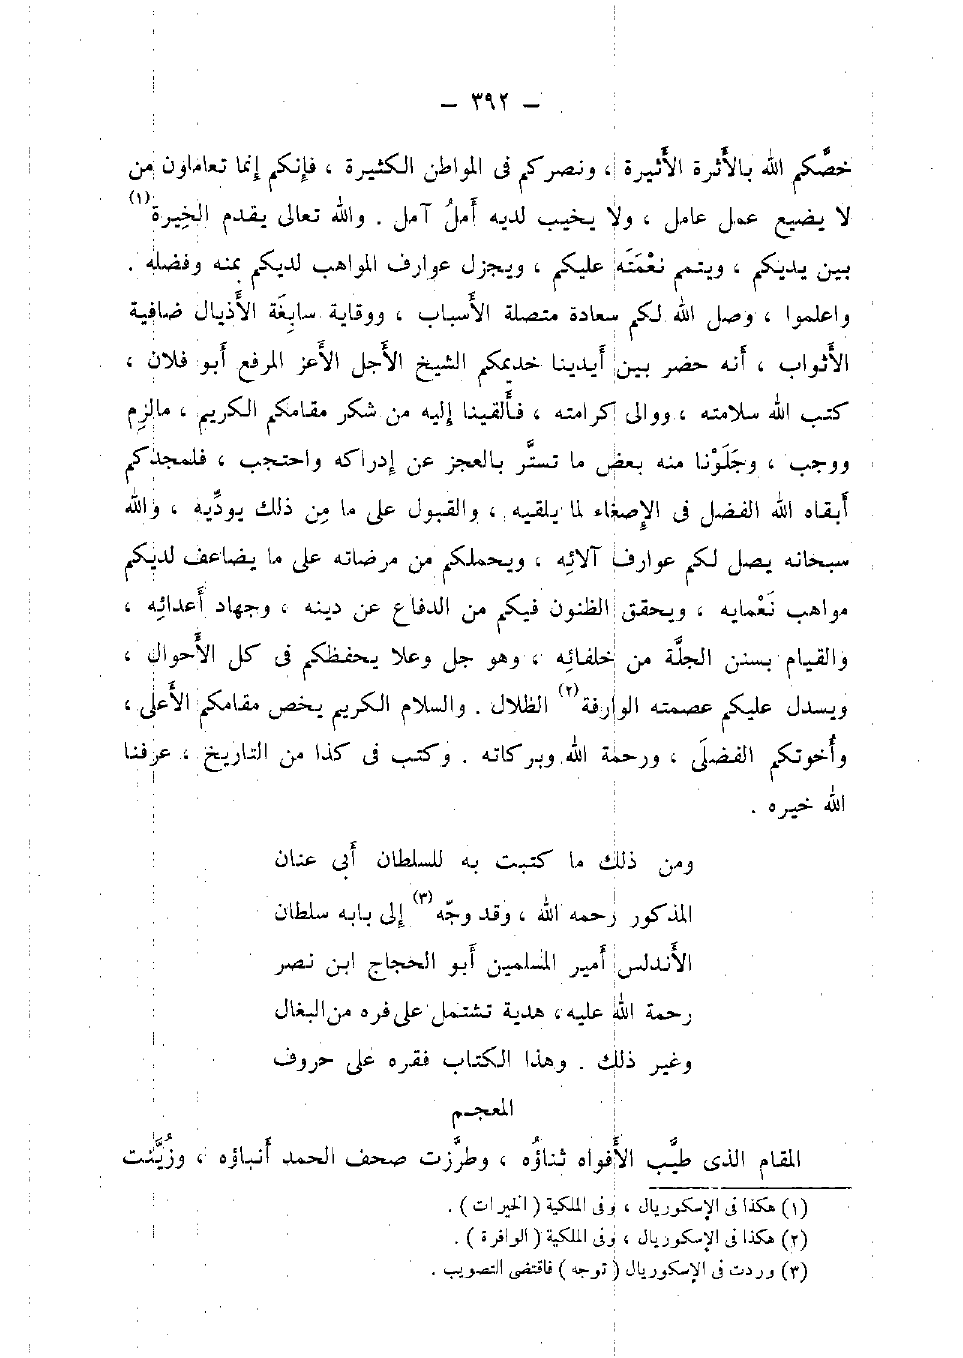 — ٣٩٢ —
خصَّكم الله بالأَثرة الأَثيرة ، ونصركم فى المواطن الكثيرة ، فإنكم إنما تعاملون من
لا يضيع عمل عامل ، ولا يخيب لديه أَملُ آمل . والله تعالى يقدم الخِيرة(١)
بين يديكم ، ويتمم نعْمَتَه عليكم ، ويجزل عوارف المواهب لديكم بمنه وفضله .
واعلموا ، وصل الله لكم سعادة متصلة الأَسباب ، ووقاية سابِغَة الأَذيال ضافية
الأَثواب ، أَنه حضر بين أَيدينا خديمكم الشيخ الأَجل الأَعز المرفع أَبو فلان ،
كتب الله سلامته ، ووالى كرامته ، فأَلقينا إليه من شكر مقامكم الكريم ، مالزِم
ووجب ، وجَلَوْنا منه بعض ما تستَّر بالعجز عن إدراكه واحتجب ، فلمجدكم
أَبقاه الله الفضل فى الإِصغاء لما يلقيه ، والقبول على ما مِن ذلك يودِّيه ، والله
سبحانه يصل لكم عوارف آلائِه ، ويحملكم من مرضاته على ما يضاعف لديكم
مواهب نَعْمايه ، ويحقق الظنون فيكم من الدفاع عن دينه ، وجهاد أَعدائِه ،
والقيام بسنن الجلَّة من خلفائِه ، وهو جل وعلا يحفظكم فى كل الأَحوال ،
ويسدل عليكم عصمته الوارفة(٢) الظلال . والسلام الكريم يخص مقامكم الأَعلى ،
وأُخوتكم الفضلَى ، ورحمة الله وبركاته . وكتب فى كذا من التاريخ ، عرفنا
الله خيره .
ومن ذلك ما كتبت به للسلطان أَبى عنان
المذكور رحمه الله ، وقد وجّه(٣) إلى بابه سلطان
الأَندلس أَمير المسلمين أَبو الحجاج ابن نصر
رحمة الله عليه ، هدية تشتمل على فره من البغال
وغير ذلك . وهذا الكتاب فقره على حروف
المعجم
المقام الذى طيَّب الأَفواه ثناؤُه ، وطرَّزت صحف الحمد أَنباؤه ، وزُيِّنت
(١) هكذا فى الإسكوريال ، وفى الملكية ( الخيرات ) .
(٢) هكذا فى الإسكوريال ، وفى الملكية ( الوافرة ) .
(٣) وردت فى الإسكوريال ( توجه ) فاقتضى التصويب .